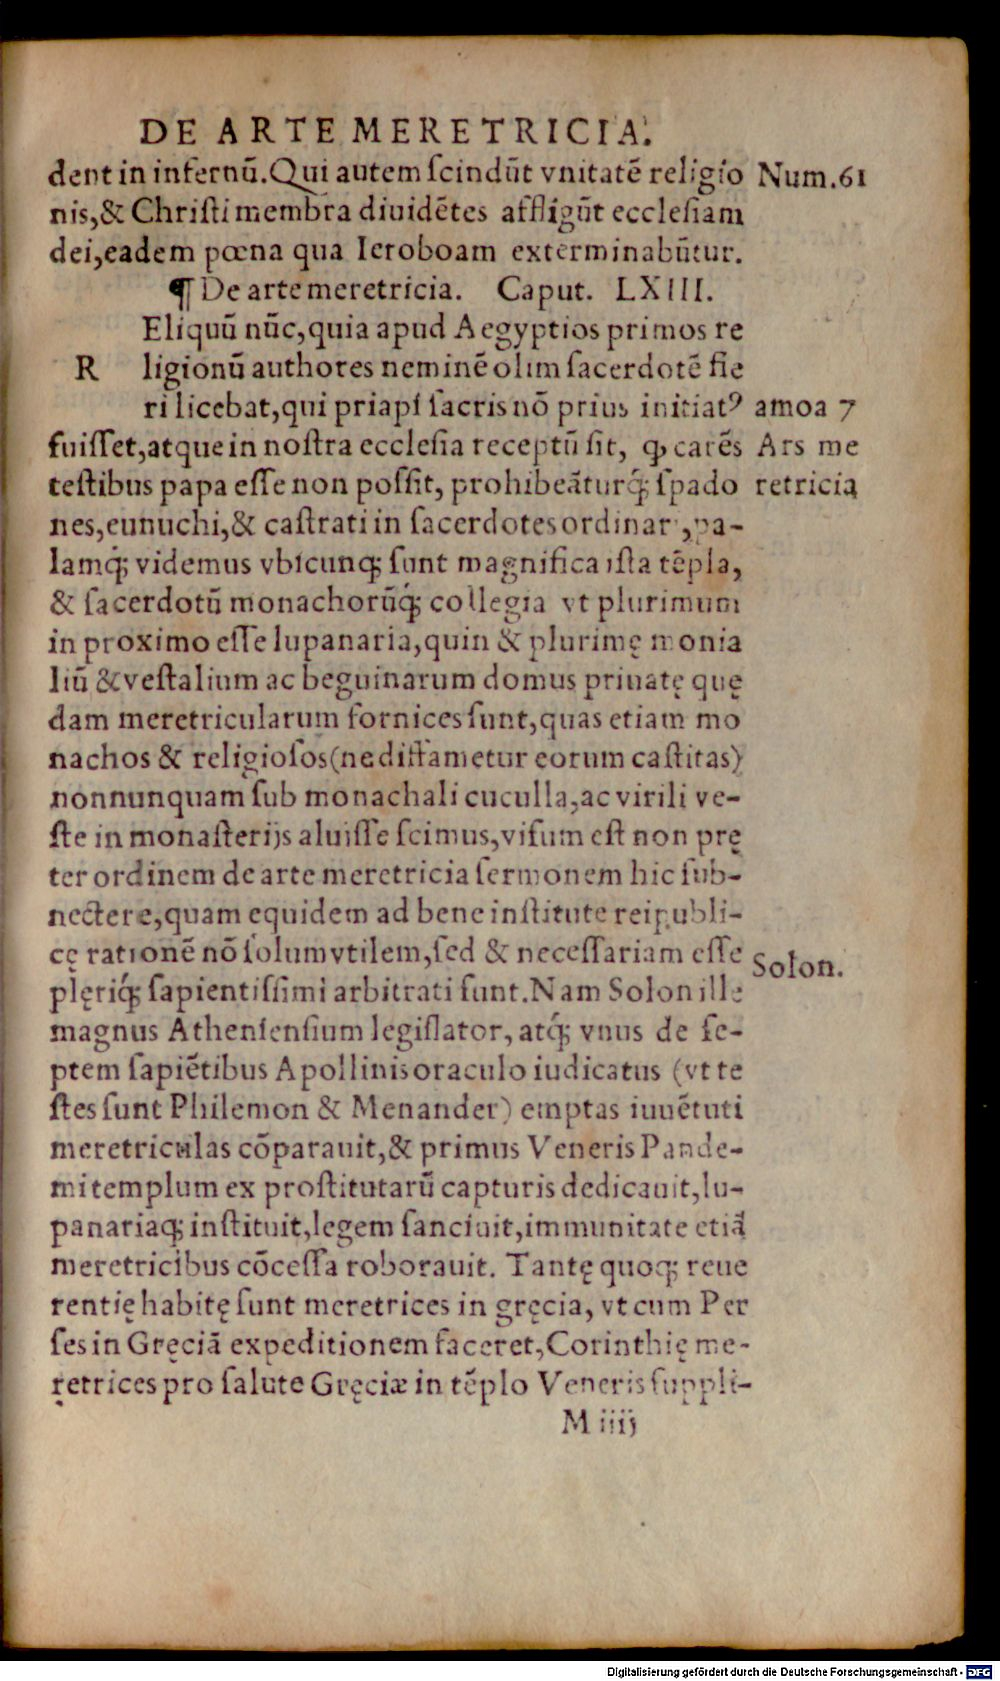 DE ARTE MERETRICIA.
dent in infernũ. Qui autem ſcindũt vnitatẽ religio
Num. 61
nis, & Chriſti membra diuidẽtes affligũt eccleſiam
dei, eadem pœna qua Ieroboam exterminabũtur.
¶ De arte meretricia. Caput. LXIII.
Eliquũ nũc, quia apud Aegyptios primos re
R ligionũ authores neminẽ olim ſacerdotẽ fie
ri licebat, qui priapi ſacris nõ prius initiatꝰ
amoa 7
fuiſſet, atque in noſtra eccleſia receptũ ſit, ꝙ carẽs
Ars me
teſtibus papa eſſe non poſſit, prohibeãturq́; ſpado
retricia
nes, eunuchi, & caſtrati in ſacerdotes ordinari, pa-
lamq́; videmus vbicunq; ſunt magnifica iſta tẽpla,
& ſacerdotũ monachorũq́; collegia vt plurimum
in proximo eſſe lupanaria, quin & plurimę monia
liũ & veſtalium ac beguinarum domus priuatę quę
dam meretricularum fornices ſunt, quas etiam mo
nachos & religioſos (ne diffametur eorum caſtitas)
nonnunquam ſub monachali cuculla, ac virili ve-
ſte in monaſterijs aluiſſe ſcimus, viſum eſt non prę
ter ordinem de arte meretricia ſermonem hic ſub-
nectere, quam equidem ad bene inſtitute reipubli-
cę rationẽ nõ ſolum vtilem, ſed & neceſſariam eſſe
Solon.
plęriq́; ſapientiſſimi arbitrati ſunt. Nam Solon ille
magnus Athenienſium legiſlator, atq́; vnus de ſe-
ptem ſapiẽtibus Apollinis oraculo iudicatus (vt te
ſtes ſunt Philemon & Menander) emptas iuuẽtuti
meretriculas cõparauit, & primus Veneris Pande-
mi templum ex proſtitutarũ capturis dedicauit, lu-
panariaq; inſtituit, legem ſanciuit, immunitate etiã
meretricibus cõceſſa roborauit. Tantę quoq; reue
rentię habitę ſunt meretrices in gręcia, vt cum Per
ſes in Gręciã expeditionem faceret, Corinthię me-
retrices pro ſalute Gręciæ in tẽplo Veneris ſuppli-
M iiij
Digitalisierung gefördert durch die Deutsche Forschungsgemeinschaft - DFG